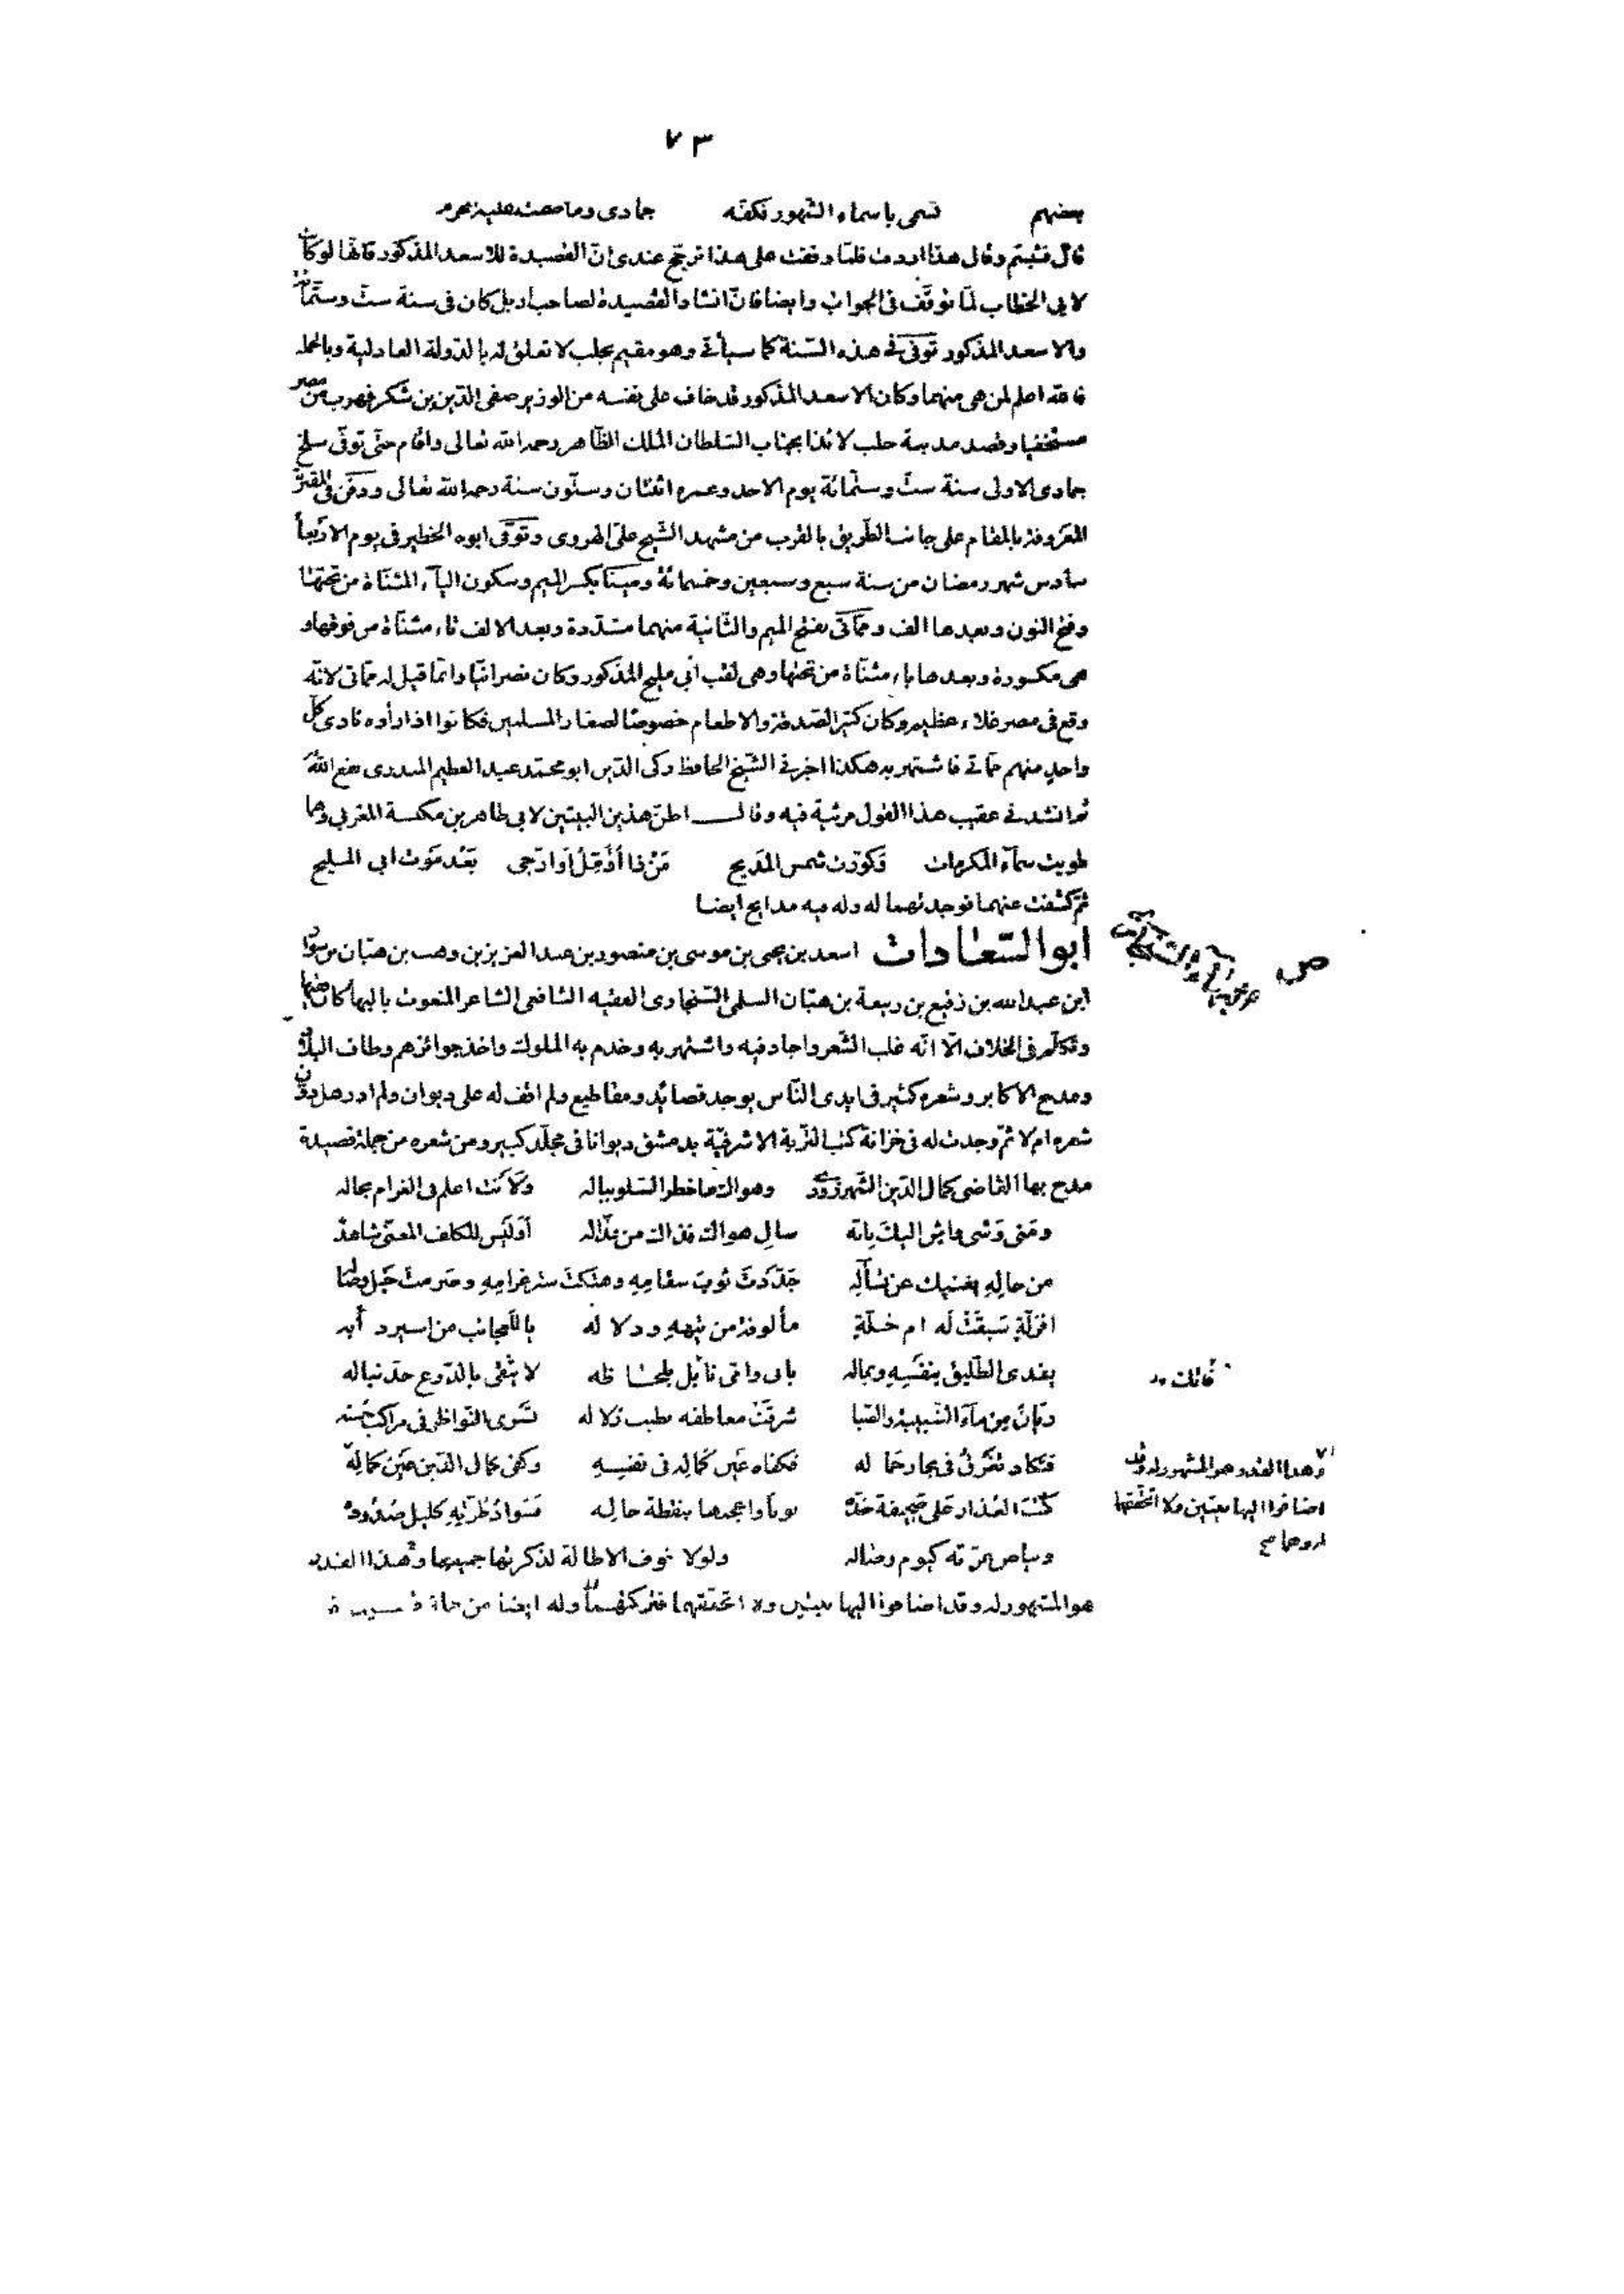 ٧٣
بعضهم تسمى باسماء الشهور فكفه جمادى وما ضمت عليه محرم
قال فتبسم وقال هذا اردت فلما وقفت على هذا ترجح عندى ان القصيدة للاسعد المذكور فانها لو كان
لابى الخطاب لما توقف فى الجواب وايضا فان انشاد القصيدة لصاحب اربل كان فى سنة ست وستمائة
والاسعد المذكور توفى فى هذه السنة كما سيأتى وهو مقيم بحلب لا تعلق له بالدولة العادلية وبالجملة
فالله اعلم لمن هى منهما وكان الاسعد المذكور قد خاف على نفسه من الوزير صفى الدين بن شكر فهرب من مصر
مستخفيا وقصد مدينة حلب لائذا بجناب السلطان الملك الظاهر رحمه الله تعالى واقام حتى توفى سلخ
جمادى الاولى سنة ست وستمائة يوم الاحد وعمره اثنتان وستون سنة رحمه الله تعالى ودفن فى المقبرة
المعروفة بالمقام على جانب الطريق بالقرب من مشهد الشيخ على الهروى وتوفى ابوه الخطير فى يوم الاربعا
سادس شهر رمضان من سنة سبع وسبعين وخمسمائة ومينا بكسر الميم وسكون اليآء المثناة من تحتها
وفتح النون وبعدها الف ومماتى بفتح الميم والثانية منهما مشددة وبعد الالف تاء مثناة من فوقها و
هى مكسورة وبعدها ياء مثناة من تحتها وهى لقب ابى مليح المذكور وكان نصرانيا وانما قيل له مماتى لانه
وقع فى مصر غلاء عظيم وكان كثير الصدقة والاطعام خصوصا لصغار المسلمين فكانوا اذا رأوه نادى كل
واحد منهم مماتى فاشتهر به هكذا اخبرنى الشيخ الحافظ زكى الدين ابو محمد عبد العظيم المنذرى نفع الله به
ثم انشدنى عقيب هذا القول مرثية فيه وقال اظن هذين البيتين لابى طاهر بن مكنسة المغربى وهما
طويت سمآء المكرمات وكورت شمس المديح من ذا أؤمل أو ارتجى بعد موت ابى المليح
ثم كشفت عنهما فوجدتهما له وله فيه مدايح ايضا
ابو السعادات اسعد بن يحيى بن موسى بن منصور بن عبد العزيز بن وهب بن هبان بن سوار
ابن عبد الله بن رفيع بن ربيعة بن هبان السلمى السنجارى الفقيه الشافعى الشاعر المنعوت بالبهاء كان فقيها
وتكلم فى الخلاف الا انه غلب الشعر واجاد فيه واشتهر به وخدم به الملوك واخذ جوائزهم وطاف البلاد
ومدح الاكابر وشعره كثير فى ايدى الناس يوجد قصائد ومقاطيع ولم اقف له على ديوان ولم ادر هل دون
شعره ام لا ثم وجدت له فى خزانة كتب التربة الاشرفية بدمشق ديوانا فى مجلد كبير ومن شعره من جملة قصيدة
مدح بها القاضى كمال الدين الشهرزورى وهواك ما خطر السلو بباله ولأنت اعلم فى الغرام بحاله
ومتى وشى واش اليك بانه سال هواك فذاك من عذاله أوليس للكلف المعنى شاهد
من حاله يغنيك عن تسآله جددت ثوب سقامه وهتكت ستر غرامه وصرمت حبل وصاله
افزلة سبقت له ام خلة مألوفة من تيهه ودلاله ياللعجائب من اسير دأبه
يفدى الطليق بنفسه وبماله بابى وامى نابل بلحاظه لا يتقى بالدرع حد نباله
قاتلت
ريان من مآء الشبيبة والصبا شرقت معاطفه بطيب زلاله تسرى النواظر فى مراكب حسنه
فتكاد تغرق فى بحار جماله فكفاه عين كماله فى نفسه وكفى كمال الدين عين كماله
كتب العذار على صحيفة خده نونا واعجمها بنقطة خاله فسواد طرته كليل صدوده
وبياض غرته كيوم وصاله ولولا خوف الاطالة لذكرتها جميعها وهذا القدر
وهذا القدر هو المشهور له وقد
اضافوا اليها بيتين ولا اتحققهما
هو المشهور له وقد اضافوا اليها بيتين ولا اتحققهما فتركتهما وله ايضا من جملة قصيدة